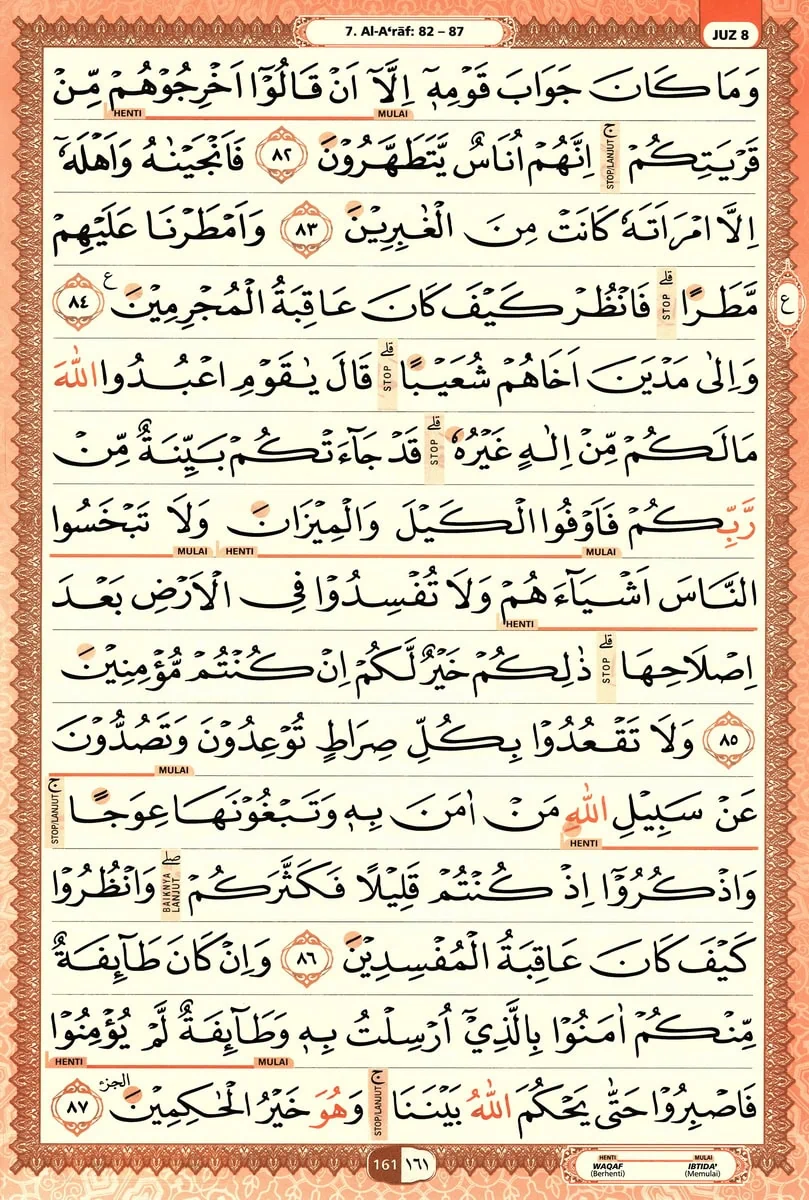 7. Al-A‘rāf: 82 – 87
JUZ 8
وَمَا كَانَ جَوَابَ قَوْمِهٖٓ اِلَّآ اَنْ قَالُوْٓا اَخْرِجُوْهُمْ مِّنْ
HENTI MULAI
قَرْيَتِكُمْۚ اِنَّهُمْ اُنَاسٌ يَّتَطَهَّرُوْنَ ٨٢ فَاَنْجَيْنٰهُ وَاَهْلَهٗٓ
STOP/LANJUT
اِلَّا امْرَاَتَهٗ كَانَتْ مِنَ الْغٰبِرِيْنَ ٨٣ وَاَمْطَرْنَا عَلَيْهِمْ
مَّطَرًاۗ فَانْظُرْ كَيْفَ كَانَ عَاقِبَةُ الْمُجْرِمِيْنَ ࣖ ٨٤
STOP
ع
وَاِلٰى مَدْيَنَ اَخَاهُمْ شُعَيْبًاۗ قَالَ يٰقَوْمِ اعْبُدُوا اللّٰهَ
STOP
مَا لَكُمْ مِّنْ اِلٰهٍ غَيْرُهٗۗ قَدْ جَاۤءَتْكُمْ بَيِّنَةٌ مِّنْ
STOP
رَّبِّكُمْ فَاَوْفُوا الْكَيْلَ وَالْمِيْزَانَ وَلَا تَبْخَسُوا
MULAI HENTI MULAI
النَّاسَ اَشْيَاۤءَهُمْ وَلَا تُفْسِدُوْا فِى الْاَرْضِ بَعْدَ
HENTI
اِصْلَاحِهَاۗ ذٰلِكُمْ خَيْرٌ لَّكُمْ اِنْ كُنْتُمْ مُّؤْمِنِيْنَ
STOP
٨٥ وَلَا تَقْعُدُوْا بِكُلِّ صِرَاطٍ تُوْعِدُوْنَ وَتَصُدُّوْنَ
MULAI
عَنْ سَبِيْلِ اللّٰهِ مَنْ اٰمَنَ بِهٖ وَتَبْغُوْنَهَا عِوَجًاۚ
HENTI
STOP/LANJUT
وَاذْكُرُوْٓا اِذْ كُنْتُمْ قَلِيْلًا فَكَثَّرَكُمْۖ وَانْظُرُوْا
BAIKNYA LANJUT
كَيْفَ كَانَ عَاقِبَةُ الْمُفْسِدِيْنَ ٨٦ وَاِنْ كَانَ طَاۤىِٕفَةٌ
مِّنْكُمْ اٰمَنُوْا بِالَّذِيْٓ اُرْسِلْتُ بِهٖ وَطَاۤىِٕفَةٌ لَّمْ يُؤْمِنُوْا
HENTI MULAI
فَاصْبِرُوْا حَتّٰى يَحْكُمَ اللّٰهُ بَيْنَنَاۚ وَهُوَ خَيْرُ الْحٰكِمِيْنَ ٨٧
STOP/LANJUT
الجزء
161 ١٦١
HENTI MULAI
WAQAF IBTIDA'
(Berhenti) (Memulai)